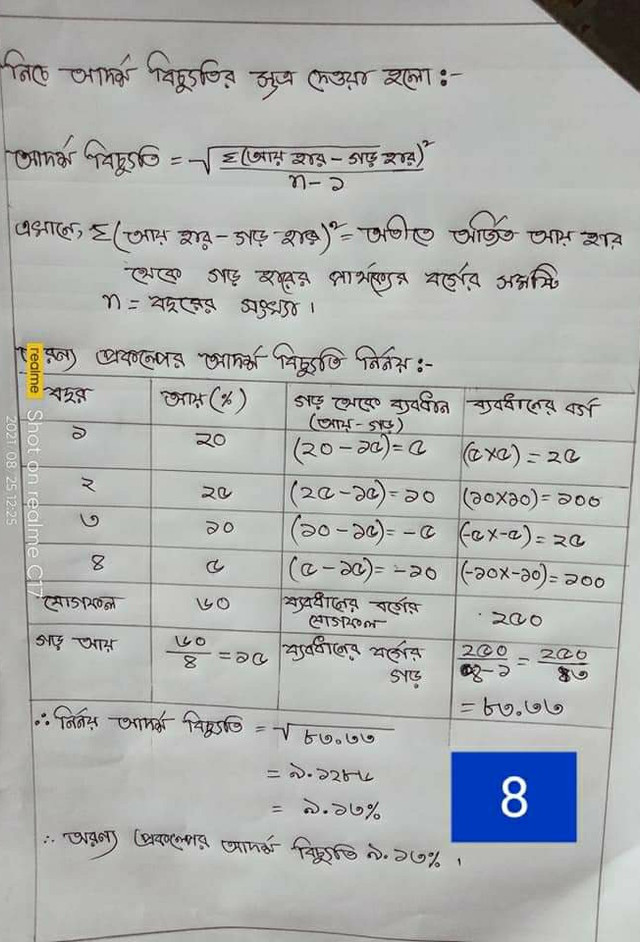 নিচে আদর্শ বিচ্যুতির সূত্র দেওয়া হলো :-
আদর্শ বিচ্যুতি = √Σ(আয় হার - গড় হার)² / n - ১
এখানে, Σ(আয় হার - গড় হার)² = অতীতে অর্জিত আয় হার
থেকে গড় হারের পার্থক্যের বর্গের সমষ্টি
n = বছরের সংখ্যা ।
অরন্য প্রকল্পের আদর্শ বিচ্যুতি নির্নয় :-
বছর আয় (%) গড় থেকে ব্যবধান (আয় - গড়) ব্যবধানের বর্গ
১ ২০ (২০ - ১৫) = ৫ (৫×৫) = ২৫
২ ২৫ (২৫ - ১৫) = ১০ (১০×১০) = ১০০
৩ ১০ (১০ - ১৫) = -৫ (-৫×-৫) = ২৫
৪ ৫ (৫ - ১৫) = -১০ (-১০×-১০) = ১০০
যোগফল ৬০ ব্যবধানের বর্গের যোগফল ২৫০
গড় আয় ৬০/৪ = ১৫ ব্যবধানের বর্গের গড় ২৫০/৪-১ = ২৫০/৩
= ৮৩.৩৩
∴ নির্নয় আদর্শ বিচ্যুতি = √৮৩.৩৩
= ৯.১২৮৫
= ৯.১৩%
∴ অরন্য প্রকল্পের আদর্শ বিচ্যুতি ৯.১৩% ।
8
realme Shot on realme C17
2021 08 25 12:25